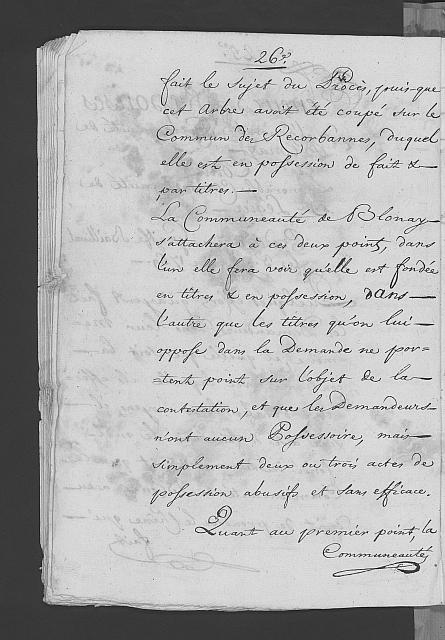 26.e
fait le sujet du Procès, puis-que
cet Arbre avoit été coupé sur le
Commun des Recorbannes, duquel
elle est en possession de fait &
par titres. —
La Communeauté de Blonay
s'attachera à ces deux point, dans
l'un elle fera voir qu'elle est fondée
en titres & en possession, dans —
l'autre que les titres qu'on lui
oppose dans la Demande ne por-
=tent point sur l'objet de la
contestation, et que les Demandeurs
n'ont aucun Possessoire, mais
simplement deux ou trois actes de
possession abusifs et sans efficace.
Quant au premier point, la
Communeauté